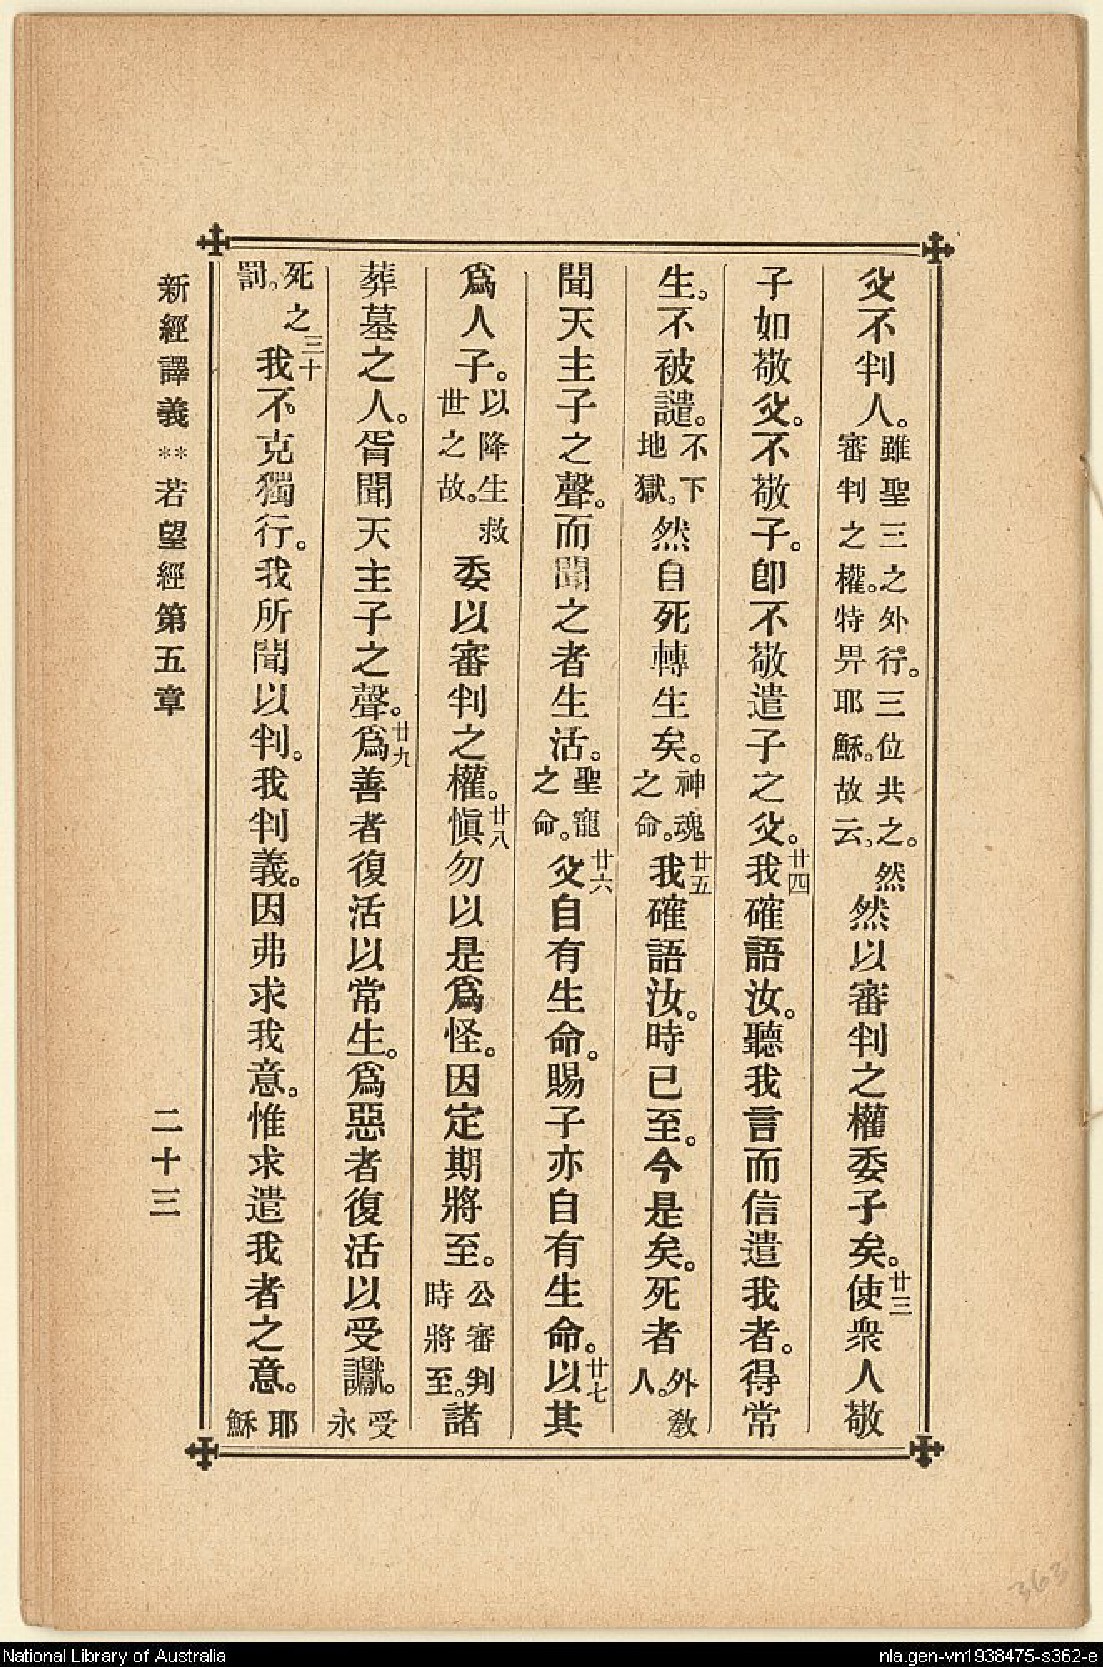 父不判人。雖聖三之外行。三位共之。然審判之權。特畀耶穌。故云。然以審判之權委子矣。廿三使衆人敬
子如敬父。不敬子。卽不敬遣子之父。廿四我確語汝。聽我言而信遣我者。得常
生。不被譴。不下地獄。然自死轉生矣。神魂之命。廿五我確語汝。時已至。今是矣。死者外敎人。
聞天主子之聲。而聞之者生活。聖寵之命。廿六父自有生命。賜子亦自有生命。廿七以其
爲人子。以降生救世之故。委以審判之權。廿八愼勿以是爲怪。因定期將至。公審判時將至。諸
葬墓之人。胥聞天主子之聲。廿九爲善者復活以常生。爲惡者復活以受讞。受永
死之罰。三十我不克獨行。我所聞以判。我判義。因弗求我意。惟求遣我者之意。耶穌
新經譯義**若望經第五章 二十三
363
National Library of Australia
nla.gen-vn1938475-s362-e